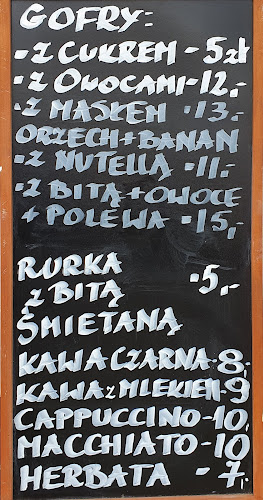 GOFRY:
• Z CUKREM - 5zł
• Z OWOCAMI - 12.-
• Z MASŁEM • 13.-
ORZECH + BANAN
• Z NUTELLĄ • 11.-
• Z BITĄ + OWOCE
+ POLEWA • 15,-
RURKA
Z BITĄ • 5,-
ŚMIETANĄ
KAWA CZARNA - 8,-
KAWA Z MLEKIEM - 9
CAPPUCCINO - 10,-
MACCHIATO - 10
HERBATA - 7,-